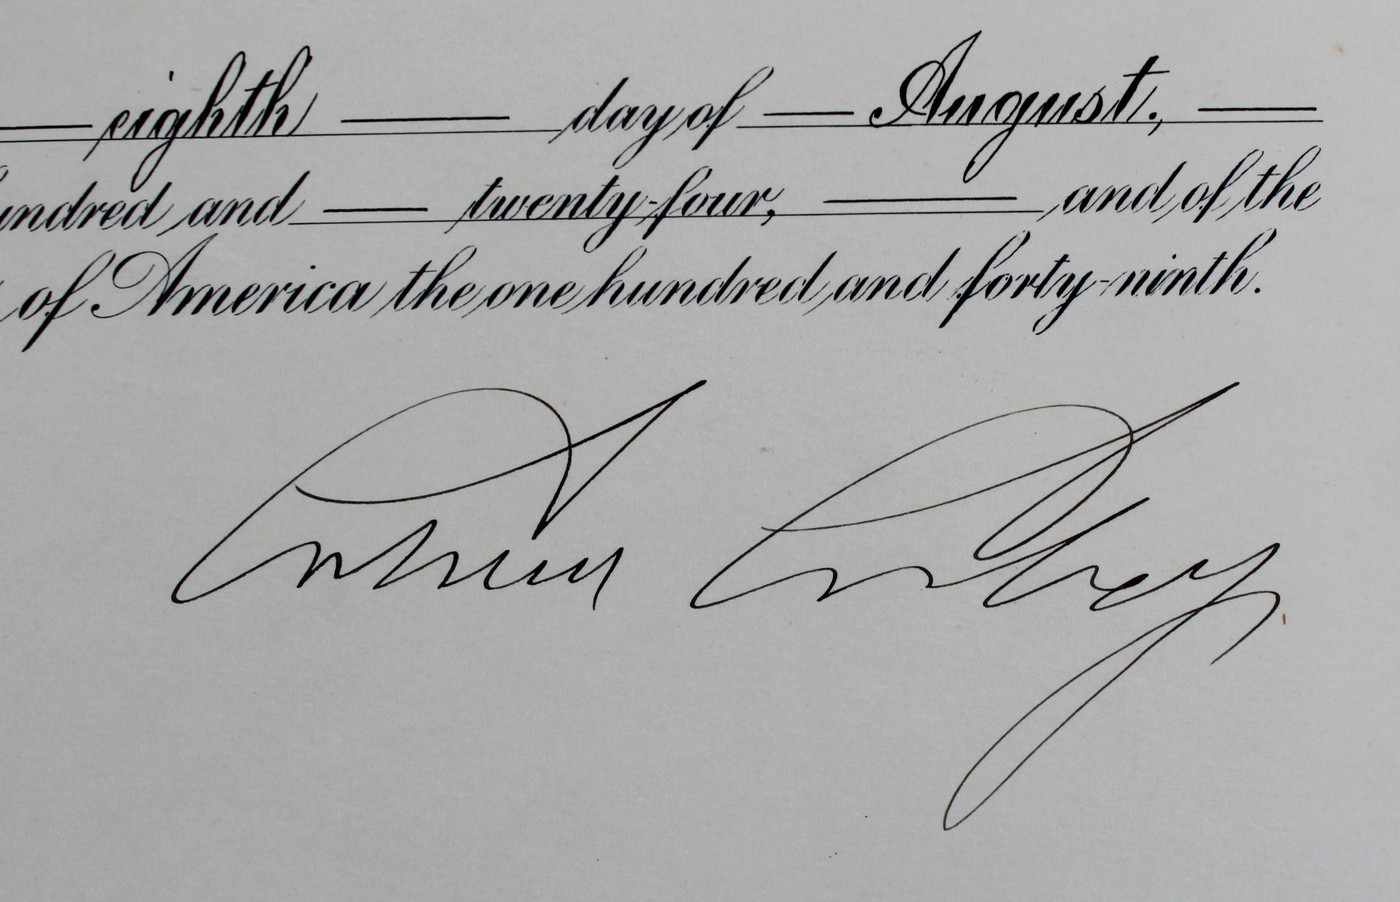 eighth day of August,
undred and twenty-four, and of the
of America the one hundred and forty-ninth.
Calvin Coolidge